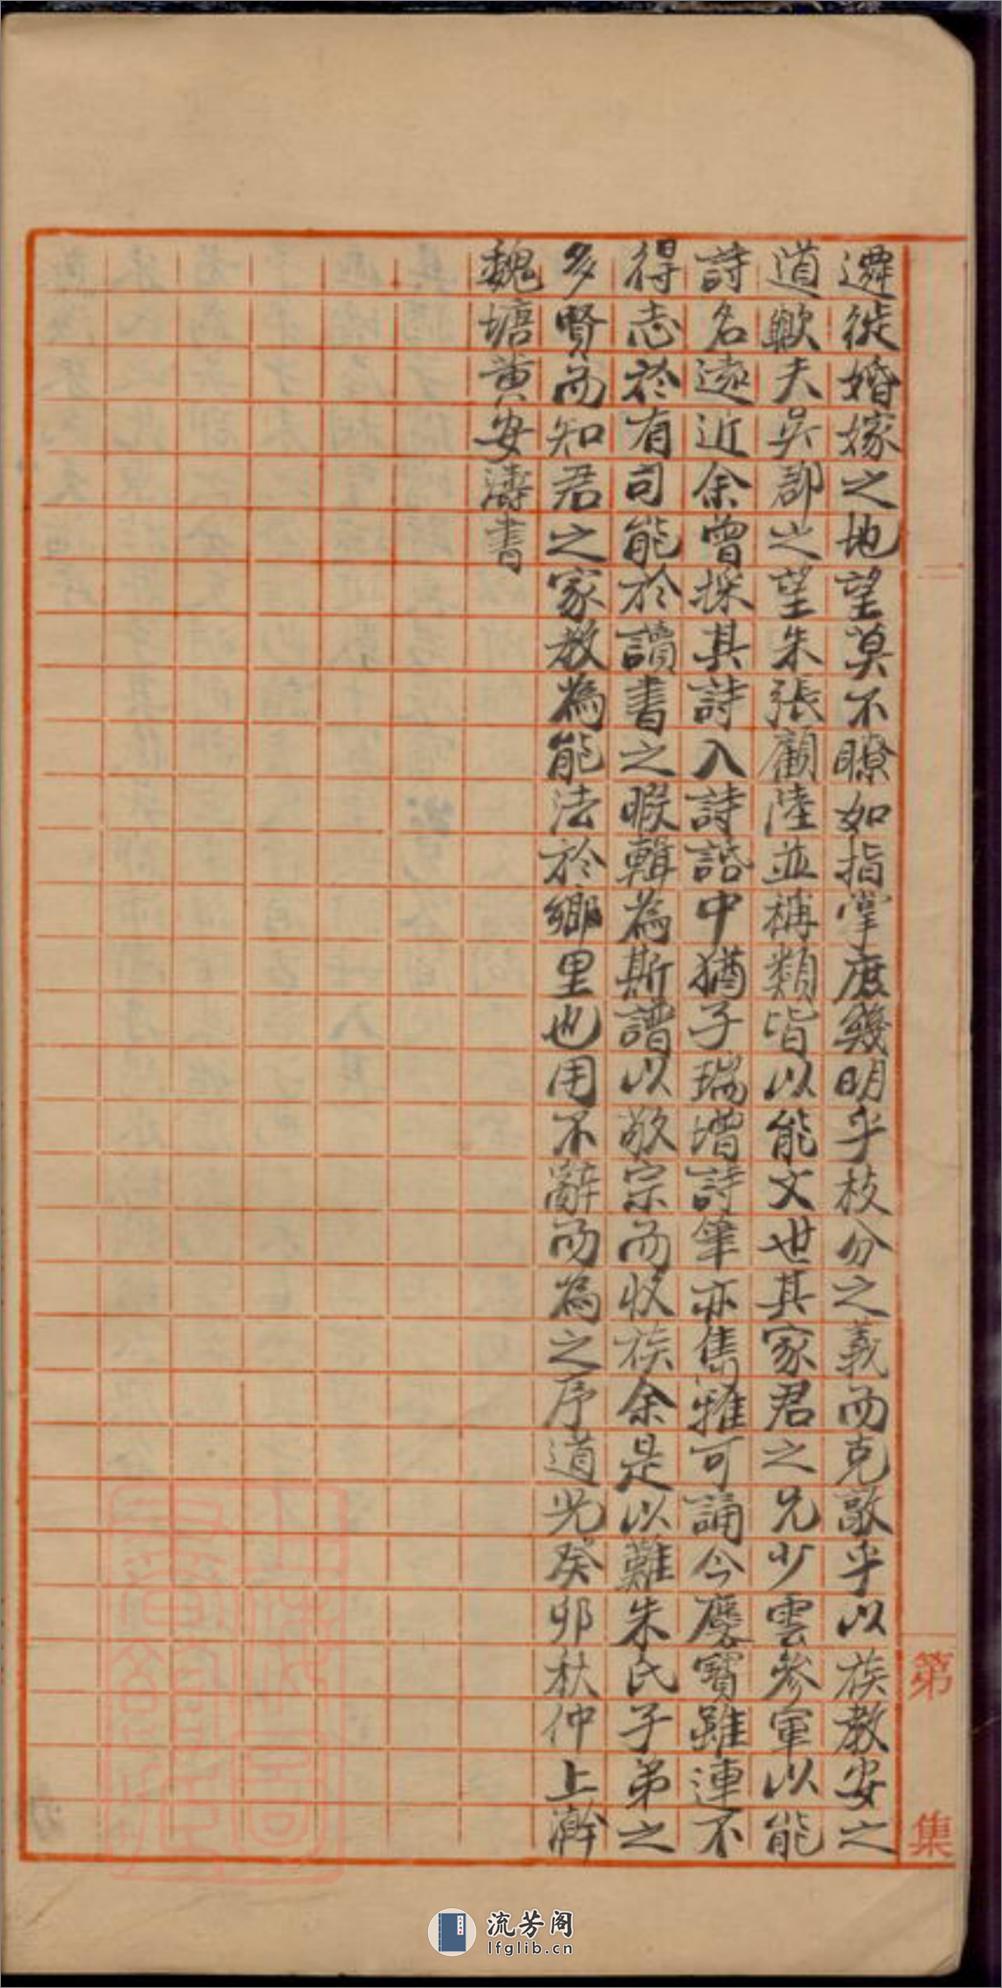 遷徙婚嫁之地望莫不瞭如指掌庶幾明乎枝分之義而克敵乎以族教安之
道歟夫吳郡之望朱張顧陸並稱類皆以能文世其家君之兄少雲參軍以能
詩名遠近余曾採其詩入詩話中猶子瑞增詩筆亦雋雅可誦今麐寶雖連不
得志於有司能於讀書之暇輯為斯譜以敬宗而收族余是以難朱氏子弟之
多賢而知君之家教為能法於鄉里也用不辭而為之序道光癸卯秋仲上澣
魏塘黃安濤書
第 集
流芳阁
lfglib.cn